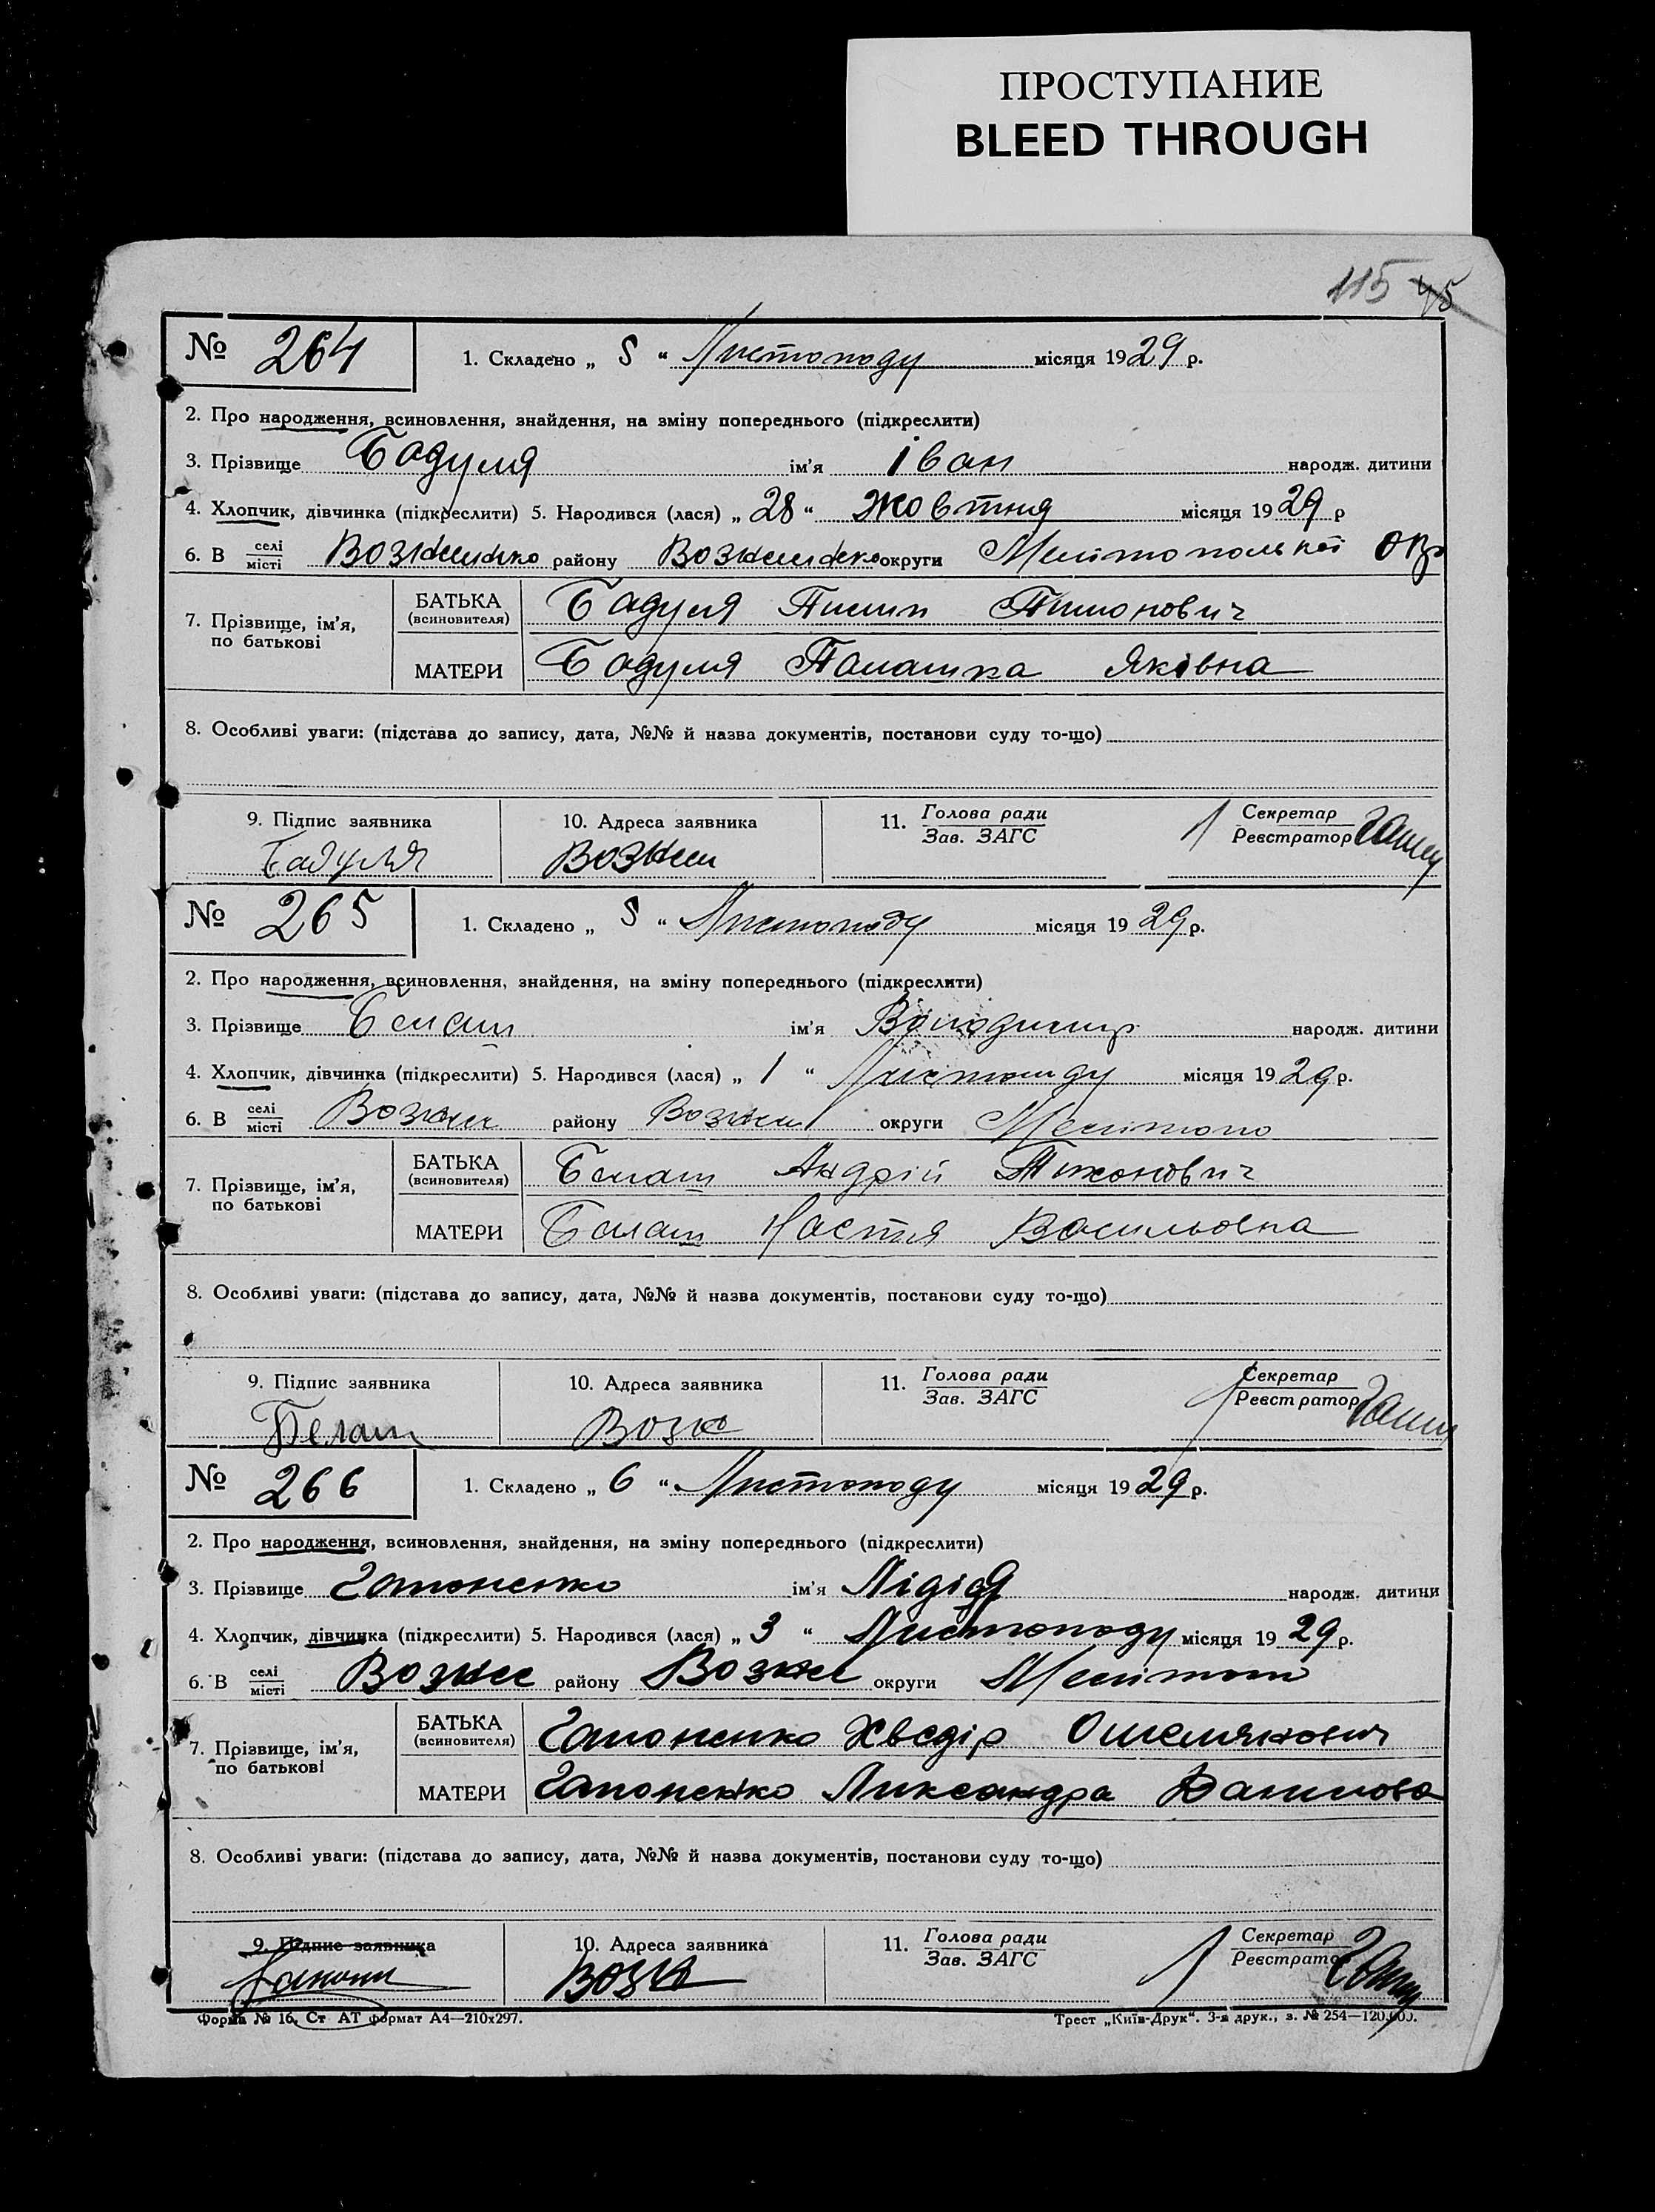 ПРОСТУПАНИЕ
BLEED THROUGH
115 45
№ 264 1. Складено „ 5 “ Листопаду місяця 1929 р.
2. Про народження, всиновлення, знайдення, на зміну попереднього (підкреслити)
3. Прізвище Бадуля ім'я Іван народж. дитини
4. Хлопчик, дівчинка (підкреслити) 5. Народився (лася) „ 28 “ Жовтня місяця 1929 р
6. В селі місті району округи Мелітопольскої
7. Прізвище, ім'я, по батькові
БАТЬКА (всиновителя) Бадуля Пилип
МАТЕРИ Бадуля Палашка Яківна
8. Особливі уваги: (підстава до запису, дата, №№ й назва документів, постанови суду то-що)
9. Підпис заявника 10. Адреса заявника 11. Голова ради Зав. ЗАГС Секретар Реєстратор
Бадуля Вознесе
№ 265 1. Складено „ 5 “ Листопаду місяця 1929 р.
2. Про народження, всиновлення, знайдення, на зміну попереднього (підкреслити)
3. Прізвище Белаш ім'я Володимир народж. дитини
4. Хлопчик, дівчинка (підкреслити) 5. Народився (лася) „ 1 “ Листопаду місяця 1929 р.
6. В селі місті Вознес району Вознес округи Мелітопо
7. Прізвище, ім'я, по батькові
БАТЬКА (всиновителя) Белаш Андрій Тихонович
МАТЕРИ Белаш Настя Васильовна
8. Особливі уваги: (підстава до запису, дата, №№ й назва документів, постанови суду то-що)
9. Підпис заявника 10. Адреса заявника 11. Голова ради Зав. ЗАГС Секретар Реєстратор
Белаш Возне
№ 266 1. Складено „ 6 “ Листопаду місяця 1929 р.
2. Про народження, всиновлення, знайдення, на зміну попереднього (підкреслити)
3. Прізвище Гапоненко ім'я Лідія народж. дитини
4. Хлопчик, дівчинка (підкреслити) 5. Народився (лася) „ 3 “ Листопаду місяця 1929 р.
6. В селі місті Вознес району Вознес округи Мелітоп
7. Прізвище, ім'я, по батькові
БАТЬКА (всиновителя) Гапоненко Хведір Омелянович
МАТЕРИ Гапоненко Лиександра Данилова
8. Особливі уваги: (підстава до запису, дата, №№ й назва документів, постанови суду то-що)
9. Підпис заявника 10. Адреса заявника 11. Голова ради Зав. ЗАГС Секретар Реєстратор
Возн
Форма № 16. Ст АТ формат А4—210х297. Трест „Київ-Друк“. 3-я друк., з. № 254—120.000.